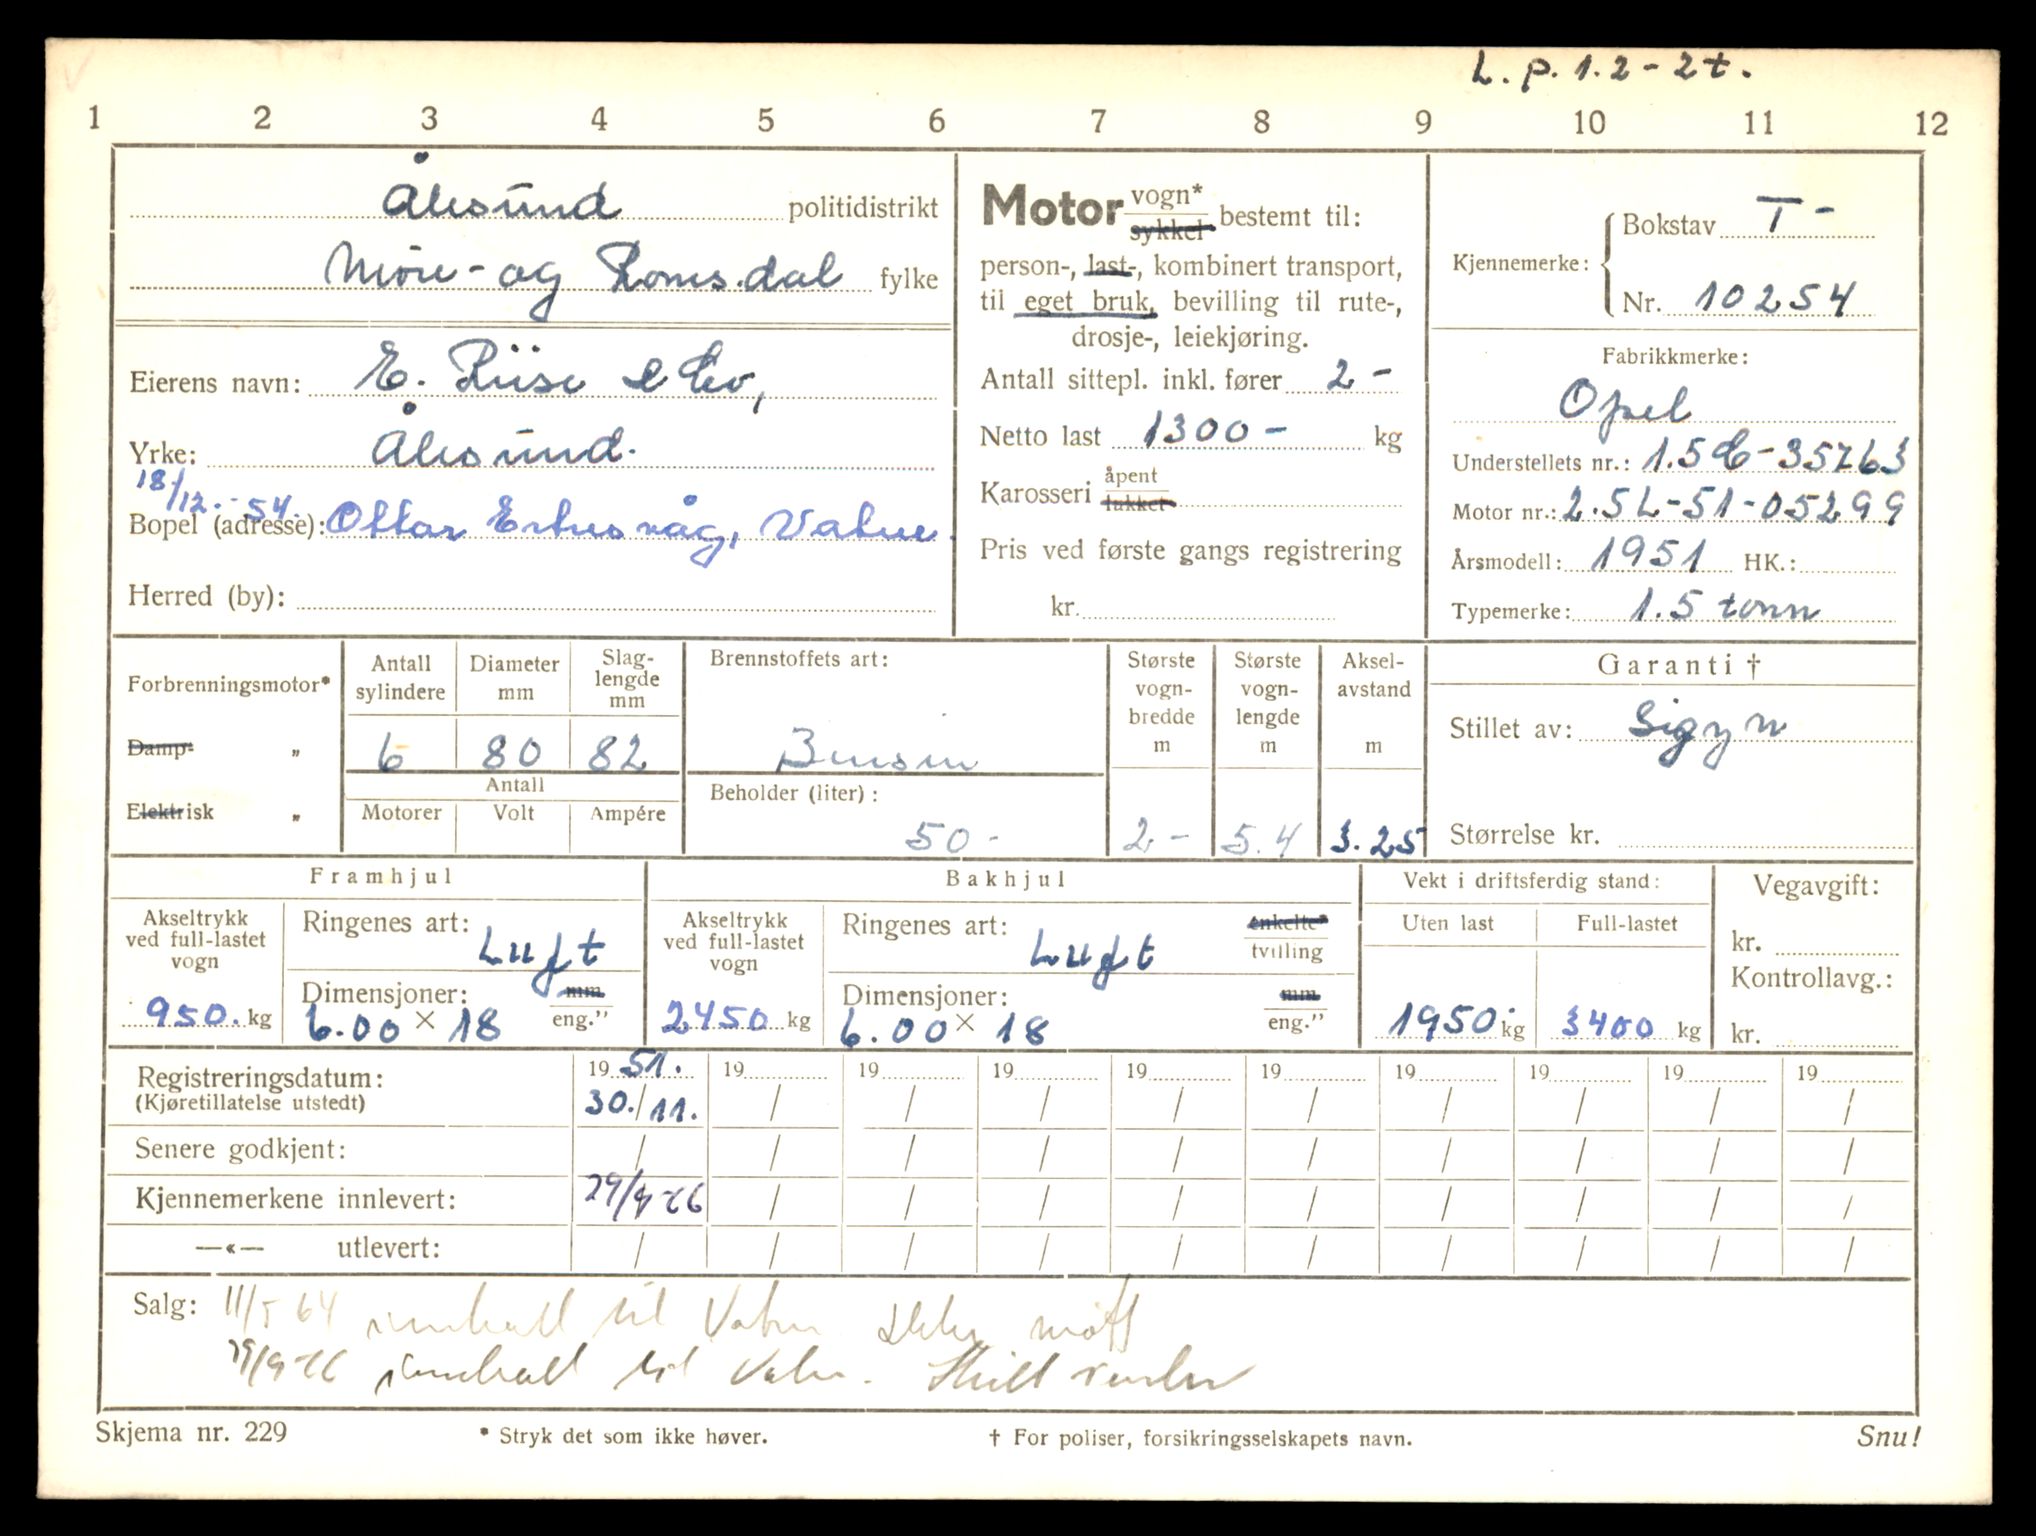 L. p. 1.2 - 2 t.
1 2 3 4 5 6 7 8 9 10 11 12
Ålesund politidistrikt
Møre- og Romsdal fylke
Eierens navn: E. Riise & Co,
Yrke: Ålesund.
18/12.-54.
Bopel (adresse): Ottar Erknsvåg, Vatne.
Herred (by):
Motor vogn*
sykkel bestemt til:
person-, last-, kombinert transport,
til eget bruk, bevilling til rute-,
drosje-, leiekjøring.
Antall sittepl. inkl. fører 2 -
Netto last 1300 - kg
Karosseri åpent
lukket
Pris ved første gangs registrering
kr.
Kjennemerke: Bokstav T -
Nr. 10254
Fabrikkmerke:
Opel
Understellets nr.: 1.5 - 35763
Motor nr.: 2.5L-51-05299
Årsmodell: 1951 HK.:
Typemerke: 1.5 tonn
Forbrenningsmotor*
Damp- „
Elektrisk „
Antall sylindere
Diameter mm
Slag-
lengde
mm
6 80 82
Antall
Motorer Volt Ampére
Brennstoffets art:
Bensin
Beholder (liter):
50 -
Største
vogn-
bredde
m
2 -
Største
vogn-
lengde
m
5.4
Aksel-
avstand
m
3.25
Garanti †
Stillet av: Sigyn
Størrelse kr.
Framhjul
Akseltrykk
ved full-lastet
vogn
950. kg
Ringenes art: Luft
Dimensjoner: mm
6.00 × 18 eng.”
Bakhjul
Akseltrykk
ved full-lastet
vogn
2450 kg
Ringenes art: enkelte*
Luft tvilling
Dimensjoner: mm
6.00 × 18 eng.”
Vekt i driftsferdig stand:
Uten last Full-lastet
1950 kg 3400 kg
Vegavgift:
kr.
Kontrollavg.:
kr.
Registreringsdatum: 19 51. 19 19 19 19 19 19 19 19 19
(Kjøretillatelse utstedt) 30./11. / / / / / / / / /
Senere godkjent: / / / / / / / / / /
Kjennemerkene innlevert: 29/9-66 / / / / / / / / /
—«— utlevert: / / / / / / / / / /
Salg: 11/5 64 innkalt til Vatne Ikke møtt
29/9-66 innkalt til Vatne. Skilt
Skjema nr. 229
* Stryk det som ikke høver.
† For poliser, forsikringsselskapets navn.
Snu!